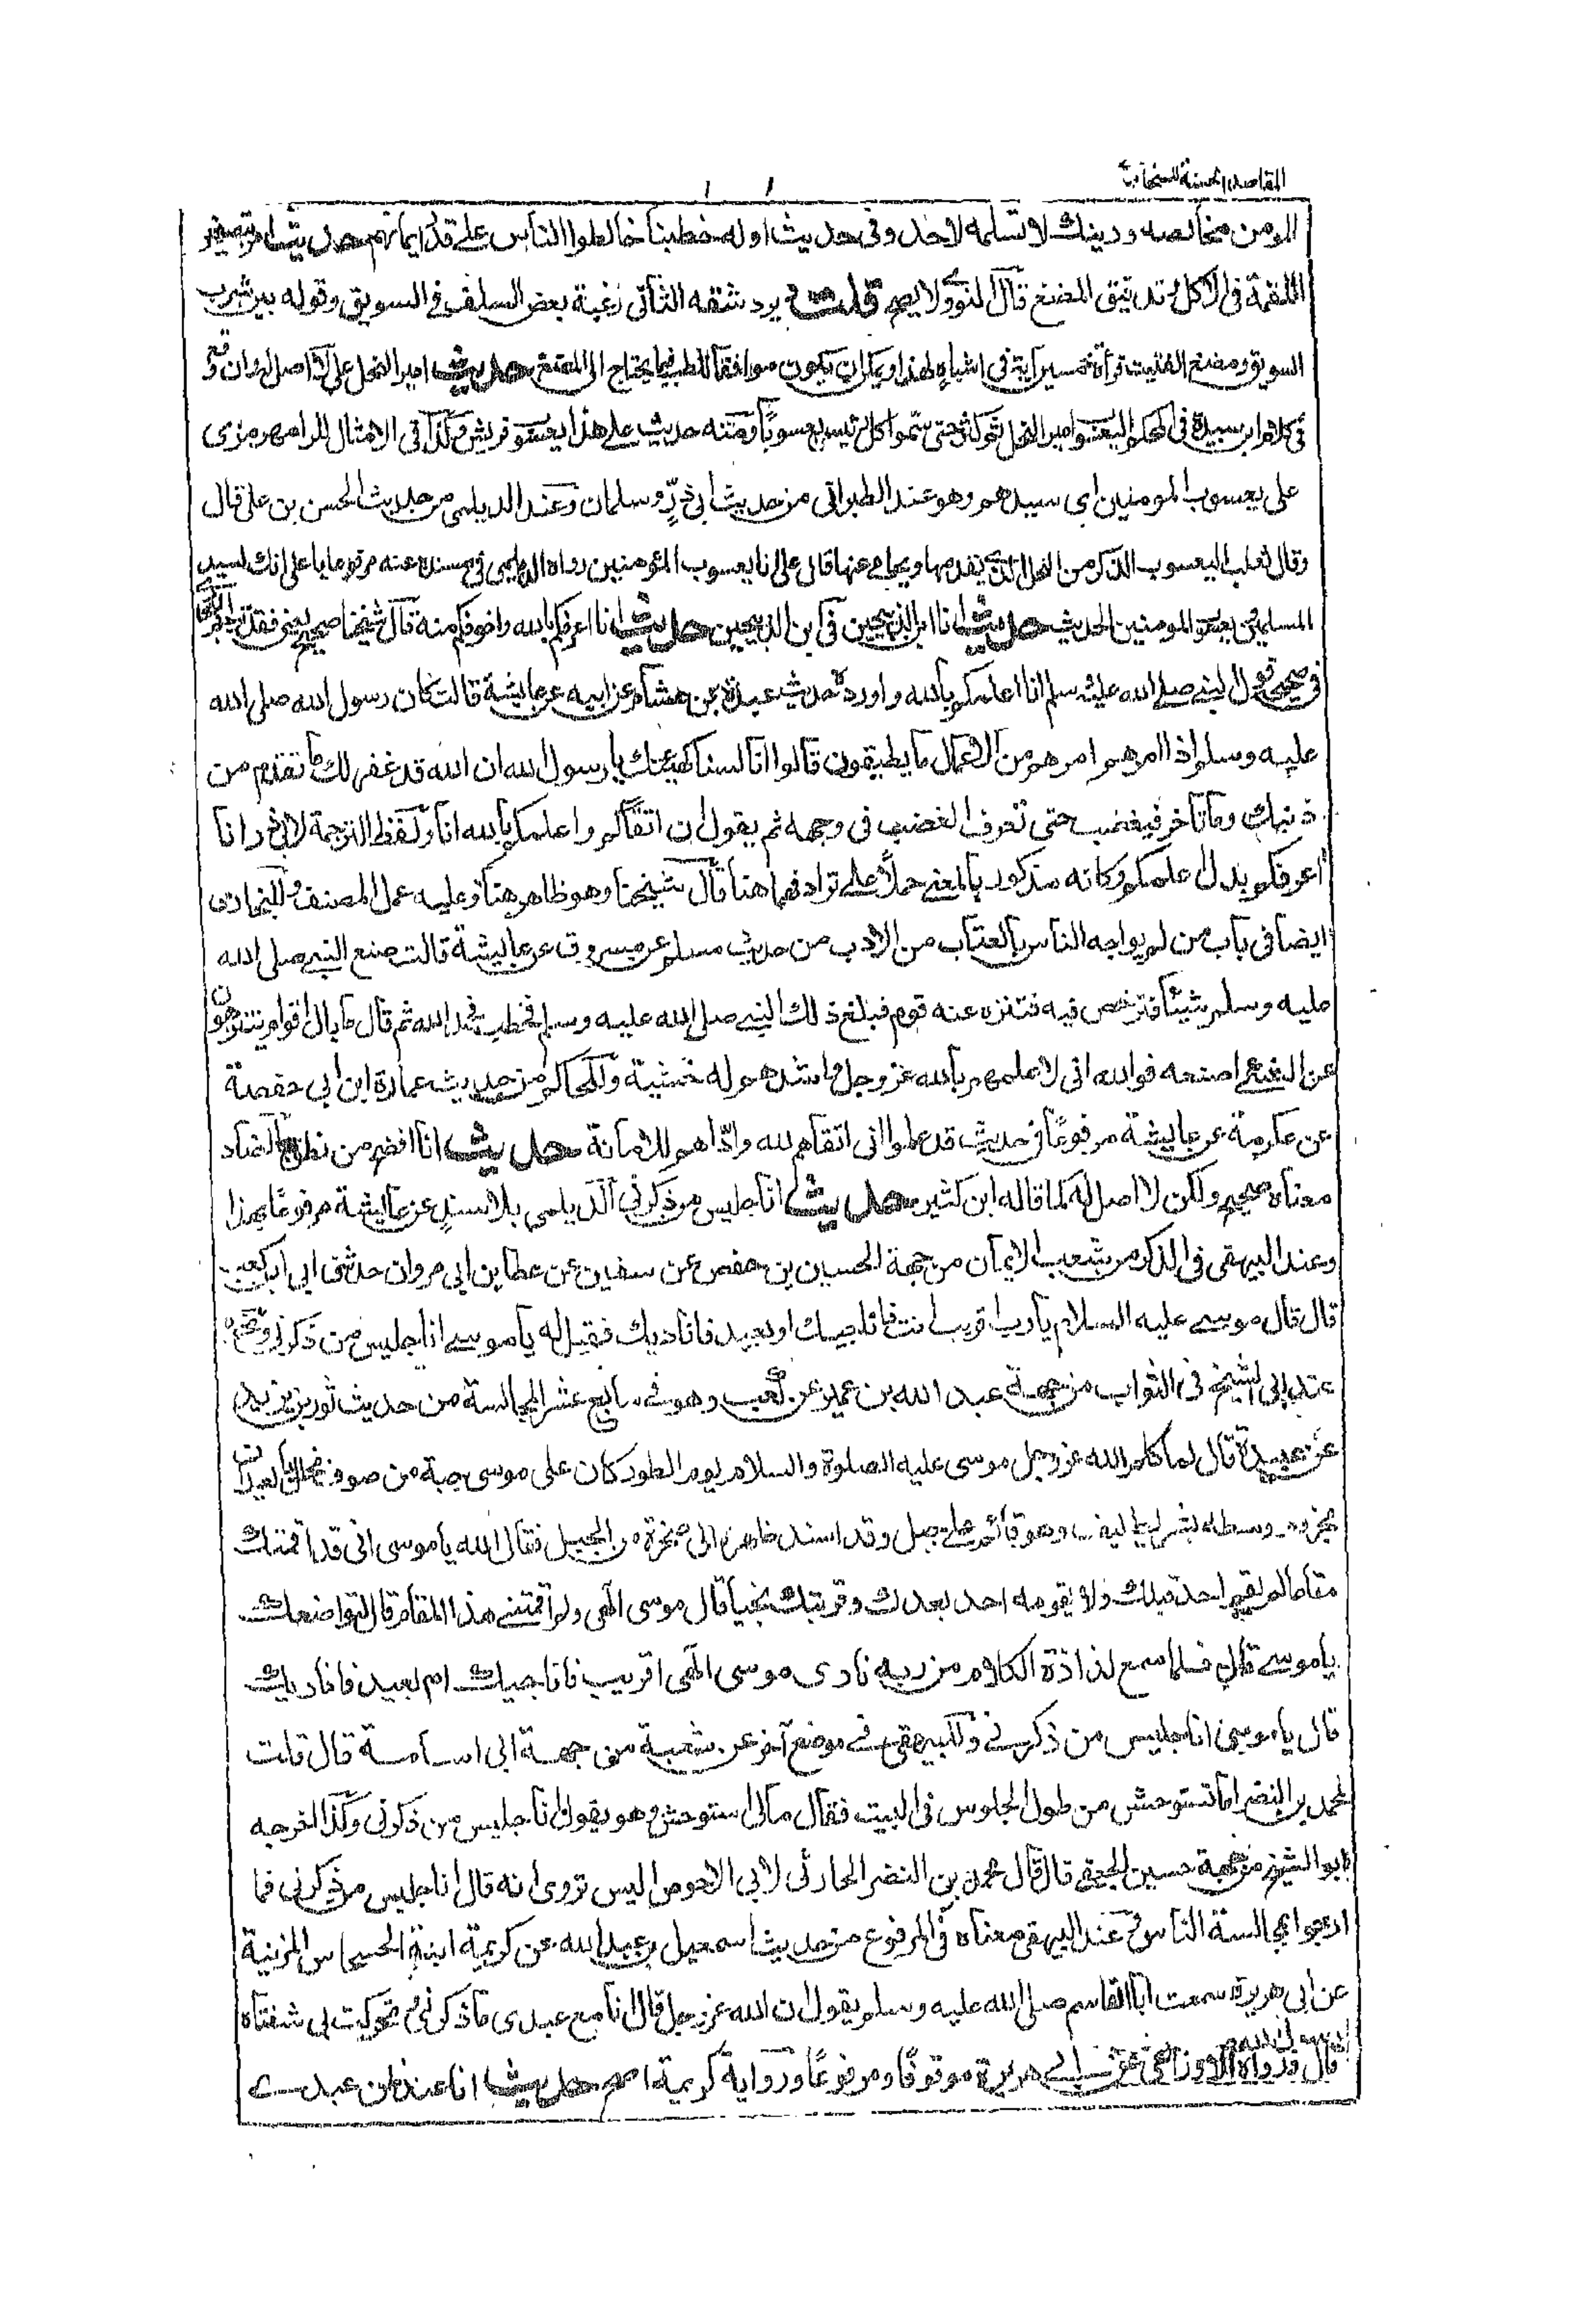 المقاصد الحسنة للسخاوي
المومن فخالصه ودينك لا تسلمه لاحد وفى حديث اوله خطبنا خالطوا الناس على قدر ايمانهم حديث امر بتصغير
اللقمة فى الاكل وتدقيق المضغ قال النووى ولا يصح قلت يرد شقه الثانى رغبة بعض السلف فى السويق وقوله بين شرب
السويق ومضغ الفتيت قرأة خمسين اية فى اشباه لهذا ويمكن ان يكون موافقا للطب فيما يحتاج الى المضغ حديث امير النحل على لا اصل له وان وقع
فى كلام ابن سيدة فى المحكم اليعسوب امير النحل ثم كثر حتى سموا كل رئيس يعسوبا ومنه حديث على هذا يعسوب قريش وكذا فى الامثال للرامهرمزى
على يعسوب المومنين اى سيدهم وهو عند الطبرانى من حديث ابى ذرّ وسلمان وعند الديلمى من حديث الحسن بن على قال
وقال ثعلب اليعسوب الذكر من النحل الذى يقدمها ويحامى عنها قال على انا يعسوب المؤمنين رواه الديلمى فى مسنده عنه مرفوعا يا على انك لسيد
المسلمين ويعسوب المومنين الحديث حديث انا ابن الذبيحين فى ابن الذبيحين حديث انا اعرفكم بالله واخوفكم منه قال شيخنا صحيح يعنى فقد ترجم البخارى
فى صحيحه قول النبى صلى الله عليه وسلم انا اعلمكم بالله واورده حديث عبدة عن هشام عن ابيه عن عايشة قالت كان رسول الله صلى الله
عليه وسلم اذا امرهم امرهم من الاعمال ما يطيقون قالوا انا لسنا كهيئتك يا رسول الله ان الله قد غفر لك ما تقدم من
ذنبك وما تاخر فيغضب حتى تعرف الغضب فى وجهه ثم يقول ان اتقاكم واعلمكم بالله انا ولفظ الترجمة لابى ذر انا
اعرفكم بدل اعلمكم وكانه مذكور بالمعنى حملاً على ترادفهما هنا قال شيخنا وهو ظاهر هنا وعليه عمل المصنف وللبخارى
ايضا فى باب من لم يواجه الناس بالعتاب من الادب من حديث مسلم عن مسروق عن عايشة قالت صنع النبى صلى الله
عليه وسلم شيئا فترخص فيه فتنزه عنه قوم فبلغ ذلك النبى صلى الله عليه وسلم فخطب فحمد الله ثم قال ما بال اقوام يتنزهون
عن الشئ اصنعه فوالله انى لاعلمهم بالله عز وجل واشدهم له خشية وللحاكم من حديث عمارة ابن ابى حفصة
عن عكرمة عن عايشة مرفوعًا فى حديث قد علموا انى اتقاهم لله وادّاهم للامانة حديث انا افصح من نطق بالضاد
معناه صحيح ولكن لا اصل له كما قاله ابن كثير حديث انا جليس من ذكرنى الديلمى بلا سند عن عايشة مرفوعًا بهذا
وعند البيهقى فى الذكر من شعب الايمان من جهة الحسين بن حفص عن سفين عن عطا بن ابى مروان حدثنى ابى ابن كعب
قال قال موسى عليه السلام يا رب اقريب انت فاناجيك او بعيد فاناديك فقيل له يا موسى انا جليس من ذكرنى ونحوه
عند ابى الشيخ فى الثواب من جهة عبد الله بن عمير عن كعب وهو فى سابع عشر المجالسة من حديث ثور بن يزيد
عن عبيدة قال لما كلم الله عز وجل موسى عليه الصلوة والسلام يوم الطور كان على موسى جبة من صوف مخللة بالعيدان
محزوم وسطه بشريط ليف وهو قائم على جبل وقد اسند ظهره الى صخرة من الجبل فقال الله يا موسى انى قد اقمتك
مقاما لم يقمه احد قبلك ولا يقومه احد بعدك وقربتك نجيا قال موسى الهى ولم اقمتنى هذا المقام قال لتواضعك
يا موسى قال فلما سمع لذاذة الكلام من ربه نادى موسى الهى اقريب فاناجيك ام بعيد فاناديك
قال يا موسى انا جليس من ذكرنى وللبيهقى فى موضع آخر عن شعبة من جهة ابى اسامة قال قلت
لمحمد بن النضر اما تستوحش من طول الجلوس فى البيت فقال مالى استوحش وهو يقول انا جليس من ذكرنى وكذا اخرجه
ابو الشيخ من جهة حسين الجعفى قال قال محمد بن النضر الحارثى لابى الاحوص اليس تروى انه قال انا جليس من ذكرنى فما
ارجوا بمجالسة الناس وعند البيهقى معناه فى المرفوع من حديث اسمعيل بن عبيد الله عن كريمة ابنة الحسحاس المزنية
عن ابى هريرة سمعت ابا القاسم صلى الله عليه وسلم يقول ان الله عز وجل قال انا مع عبدى ما ذكرنى وتحركت بى شفتاه
قال ورواه الاوزاعى عن ابى هريرة موقوفًا ومرفوعًا ورواية كريمة اصح حديث انا عند ظن عبدى